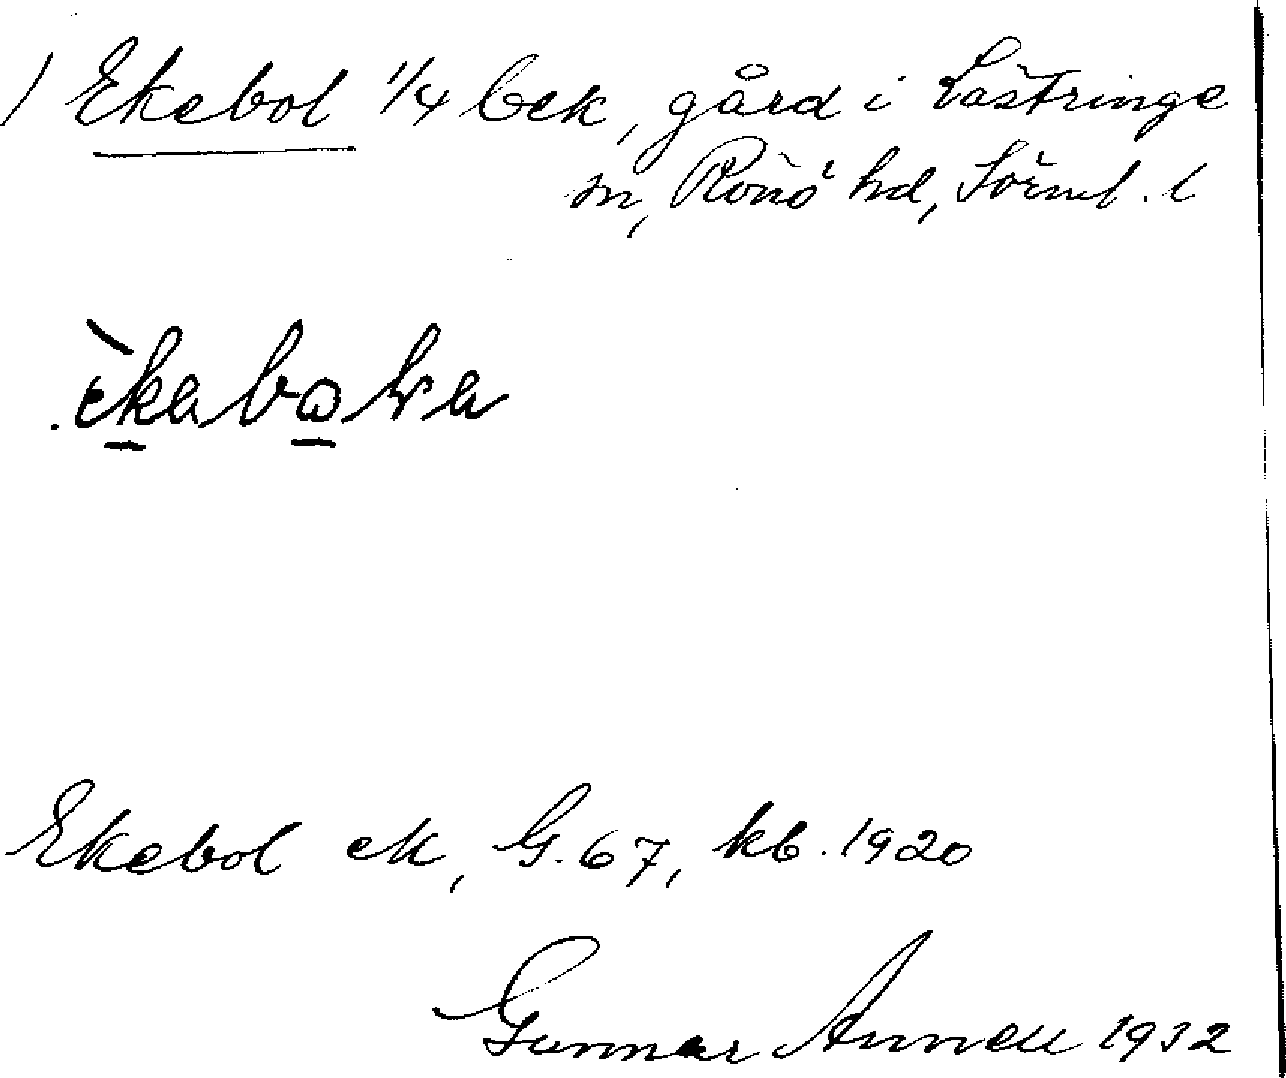 ) Ekebol 1/4 bek, gård i Lästringe
sn, Rönö hd, Sörml. l
Ekebol ek, G. 67, kb. 1920
Gunnar Annell 1932